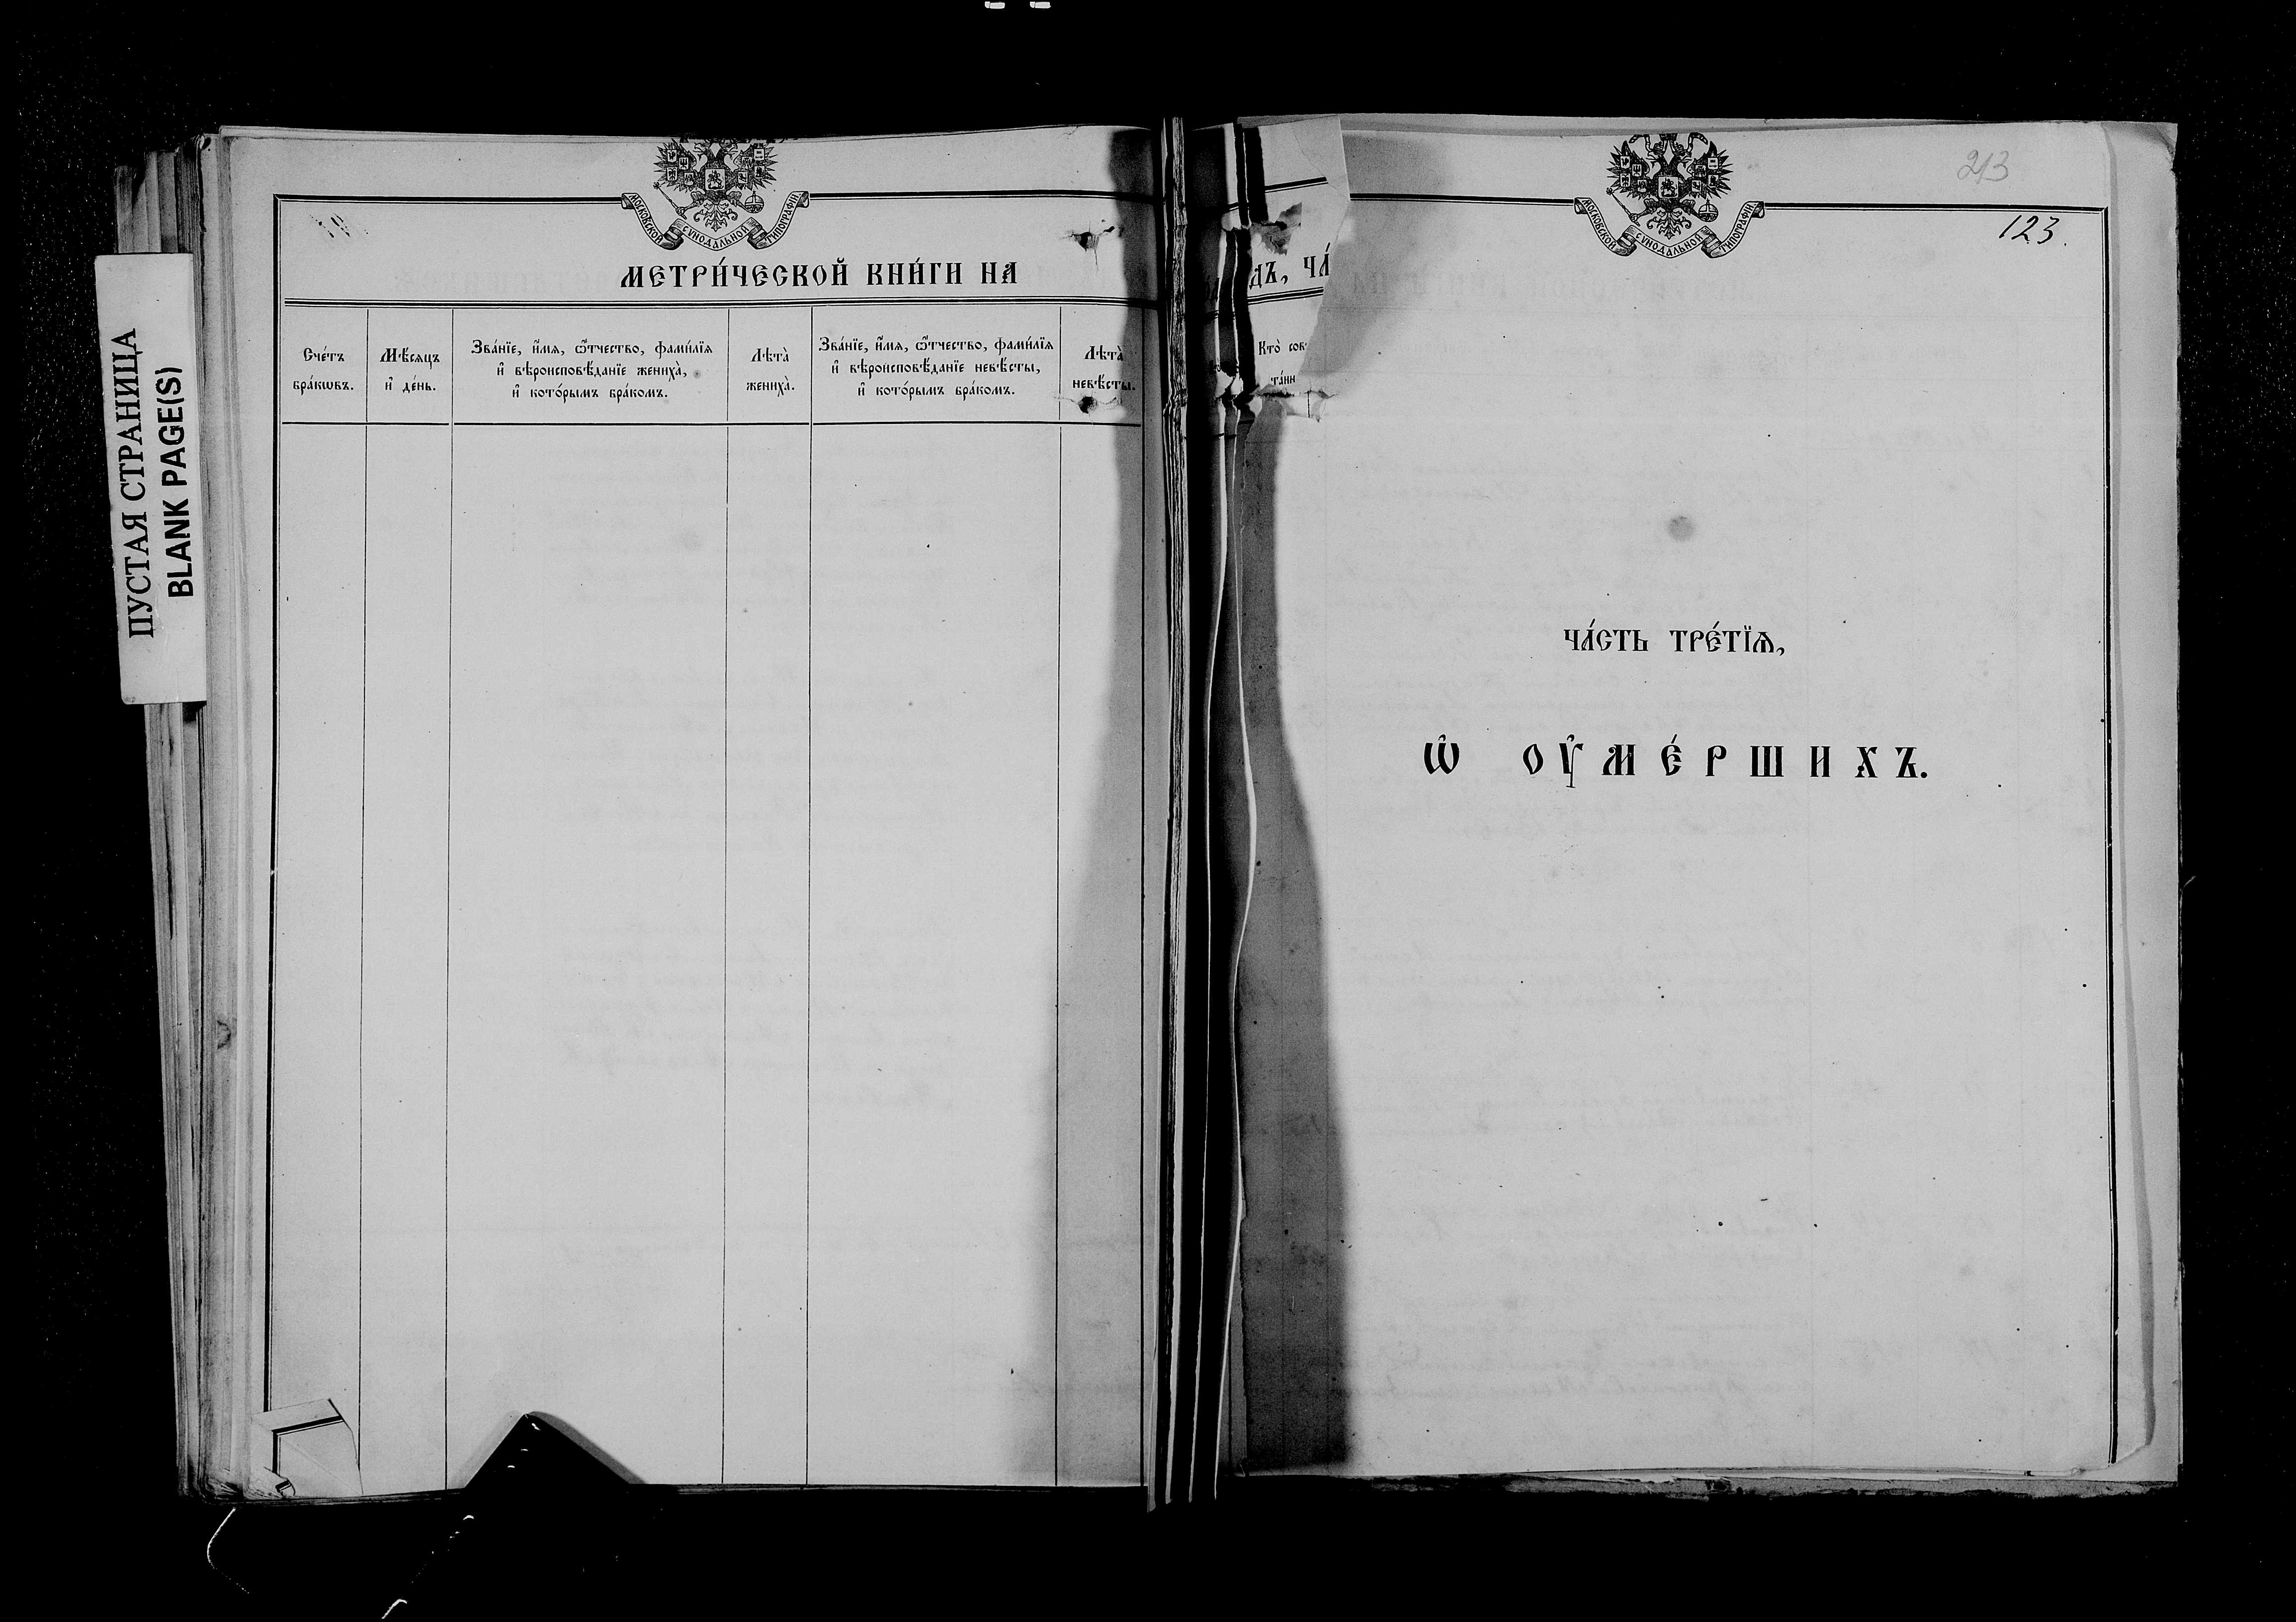 ПУСТАЯ СТРАНИЦА
BLANK PAGE(S)
МОСКОВСКОЙ СѴНОДАЛЬНОЙ ТИПОГРАФІИ
МЕТРИ́ЧЕСКОЙ КНИ́ГИ НА
Сче́тъ
бра́кѡвъ.
Мѣ́сѧцъ
и҆ де́нь.
Зва́нїе, и҆́мѧ, ѻ҆́тчество, фами́лїѧ
и҆ вѣроисповѣ́данїе жениха̀,
и҆ кото́рымъ бра́комъ.
Лѣта̀
жениха̀.
Зва́нїе, и҆́мѧ, ѻ҆́тчество, фами́лїѧ
и҆ вѣроисповѣ́данїе невѣ́сты,
и҆ кото́рымъ бра́комъ.
Лѣта̀
невѣ́сты.
дъ, ЧА́
Кто̀ сов
та́ин
213
МОСКОВСКОЙ СѴНОДАЛЬНОЙ ТИПОГРАФІИ
123.
ЧА́СТЬ ТРЕ́ТЇѦ,
Ѡ҆ ОУ҆МЕ́РШИХЪ.